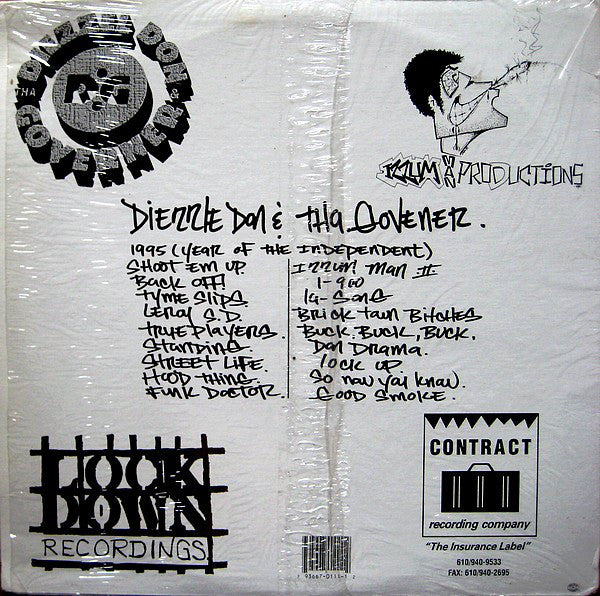 DIEZZLE DON
THA
&
GOVERNER
PRODUCTIONS
DIEZZLE DON & THA GOVENER.
1995 (YEAR OF THE INDEPENDENT)
SHOOT EM UP
BACK OFF!
TYME SLIPS.
LEROY S.D.
TRUE PLAYERS.
STANDING.
STREET LIFE.
HOOD THING.
FUNK DOCTOR.
MAN II
1-900
IG-SONG
BRICK TOWN BITCHES
BUCK, BUCK, BUCK.
DON DRAMA.
LOCK UP
SO NOW YAI KNOW.
GOOD SMOKE.
LOCK
DOWN
RECORDINGS
CONTRACT
recording company
"The Insurance Label"
610/940-9533
FAX: 610/940-2695
7 93667-0111-1 2